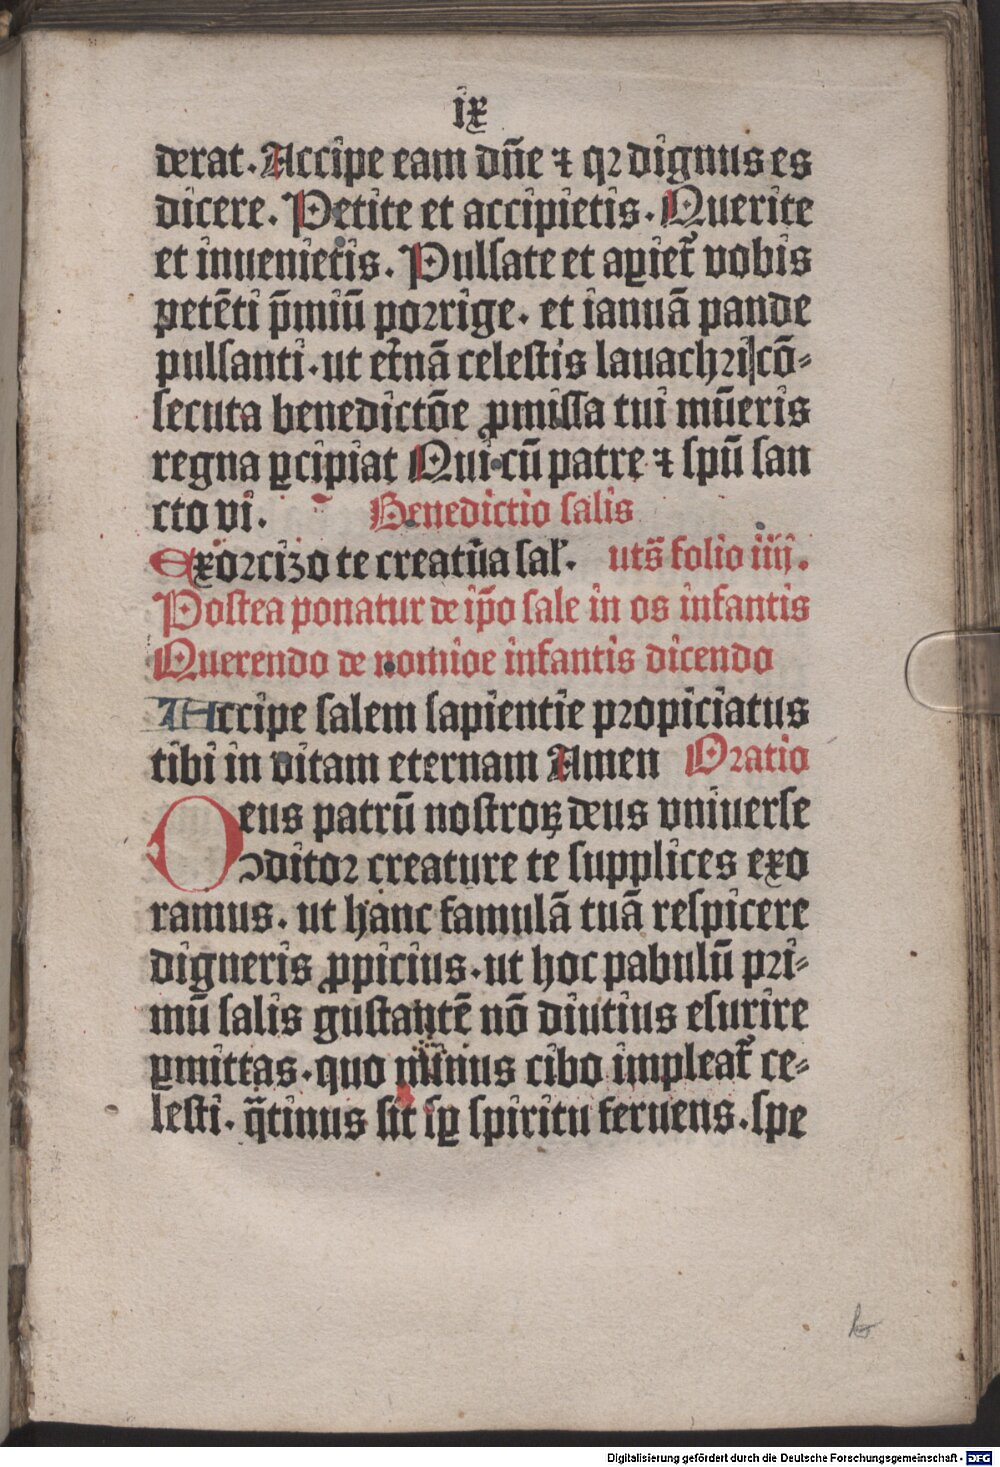 ix
derat. Accipe eam dñe ⁊ qꝛ dignus es
dicere. Petite et accipietis. Querite
et inuenietis. Pulsate et aꝑiet᷑ vobis
petēti p̄miū poꝛrige. et ianuā pande
pulsanti. ut et̄nā celestis lauachꝛi cō⸗
secuta benedictōe ꝓmissa tui mūeris
regna ꝑcipiat Qui cū patre ⁊ spū san
cto vi. Benedictio salis
Exoꝛcizo te creatūa sal̕. uts̄ folio iiij.
Postea ponatur de ip̄o sale in os infantis
Querendo de nomioe infantis dicendo
Accipe salem sapientie pꝛopiciatus
tibi in vitam eternam Amen Oꝛatio
Deus patrū nostroꝝ deus vniuerse
ↄditoꝛ creature te supplices exo
ramus. ut hanc famulā tuā respicere
digneris ꝓpicius. ut hoc pabulū pꝛi⸗
mū salis gustantē nō diutius esurire
ꝑmittas. quo minus cibo impleat᷑ ce⸗
lesti. q̄tinus sit sꝑ spiritu feruens. spe
b
Digitalisierung gefördert durch die Deutsche Forschungsgemeinschaft - DFG